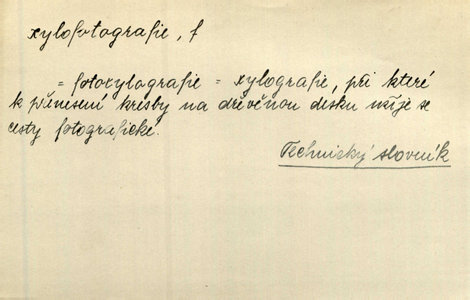 xylofotografie, f
= fotoxylografie = xylografie, při které
k přenesení kresby na dřevěnou desku užije se
cesty fotografické.
Technický slovník